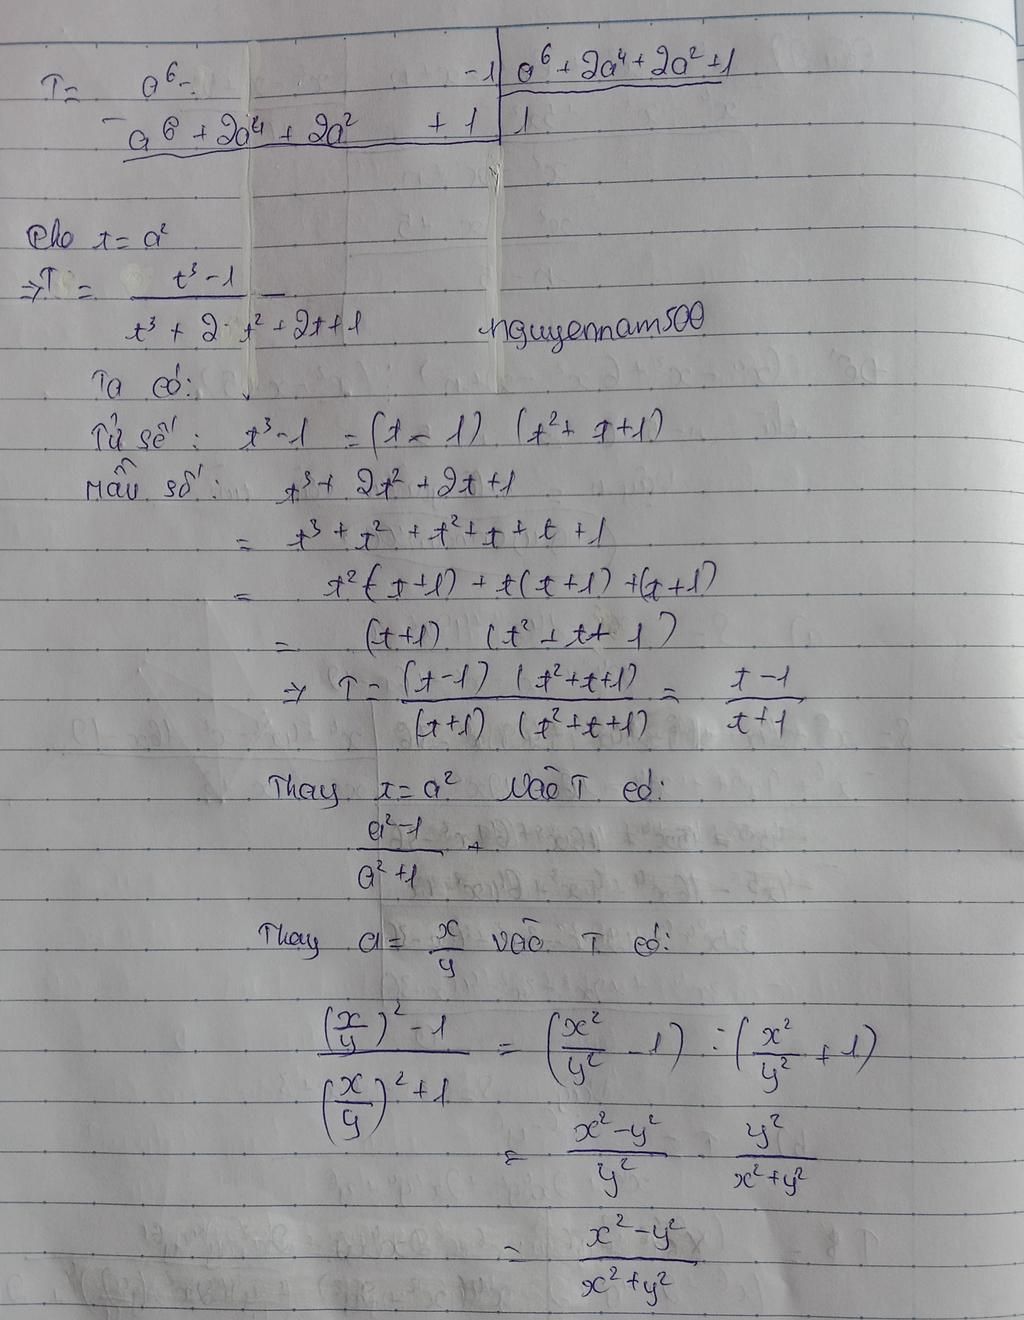 T = a⁶ - -1 | a⁶ + 2a⁴ + 2a² + 1
- a⁶ + 2a⁴ + 2a² + 1 | 1
Cho t = a²
⇒ T = (t³ - 1) / (t³ + 2·t² + 2t + 1)
nguyennam500
Ta có:
Tử số: t³ - 1 = (t - 1) (t² + t + 1)
Mẫu số: t³ + 2t² + 2t + 1
= t³ + t² + t² + t + t + 1
= t² (t + 1) + t(t + 1) + (t + 1)
= (t + 1) (t² + t + 1)
⇒ T = (t - 1) (t² + t + 1) / (t + 1) (t² + t + 1) = (t - 1) / (t + 1)
Thay t = a² vào T có:
(a² - 1) / (a² + 1)
Thay a = x/y vào T có:
((x/y)² - 1) / ((x/y)² + 1) = (x²/y² - 1) : (x²/y² + 1)
= (x² - y²)/y² · y²/(x² + y²)
= (x² - y²) / (x² + y²)